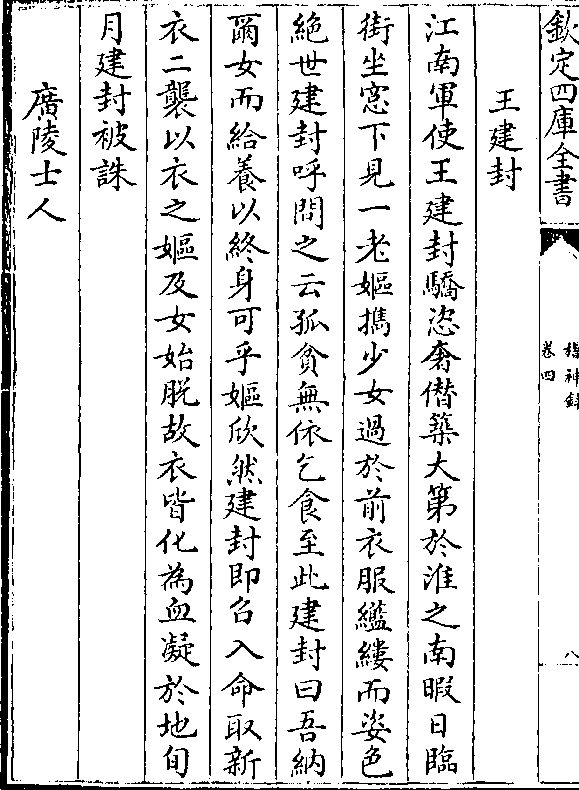 欽定四庫全書
稽神錄
卷四
八
王建封
江南軍使王建封驕恣奢僭築大第於淮之南暇日臨
街坐窓下見一老嫗攜少女過於前衣服繿縷而姿色
絶世建封呼問之云孤貧無依乞食至此建封曰吾納
爾女而給養以終身可乎嫗欣然建封即召入命取新
衣二襲以衣之嫗及女始脫故衣皆化為血凝於地旬
月建封被誅
廣陵士人